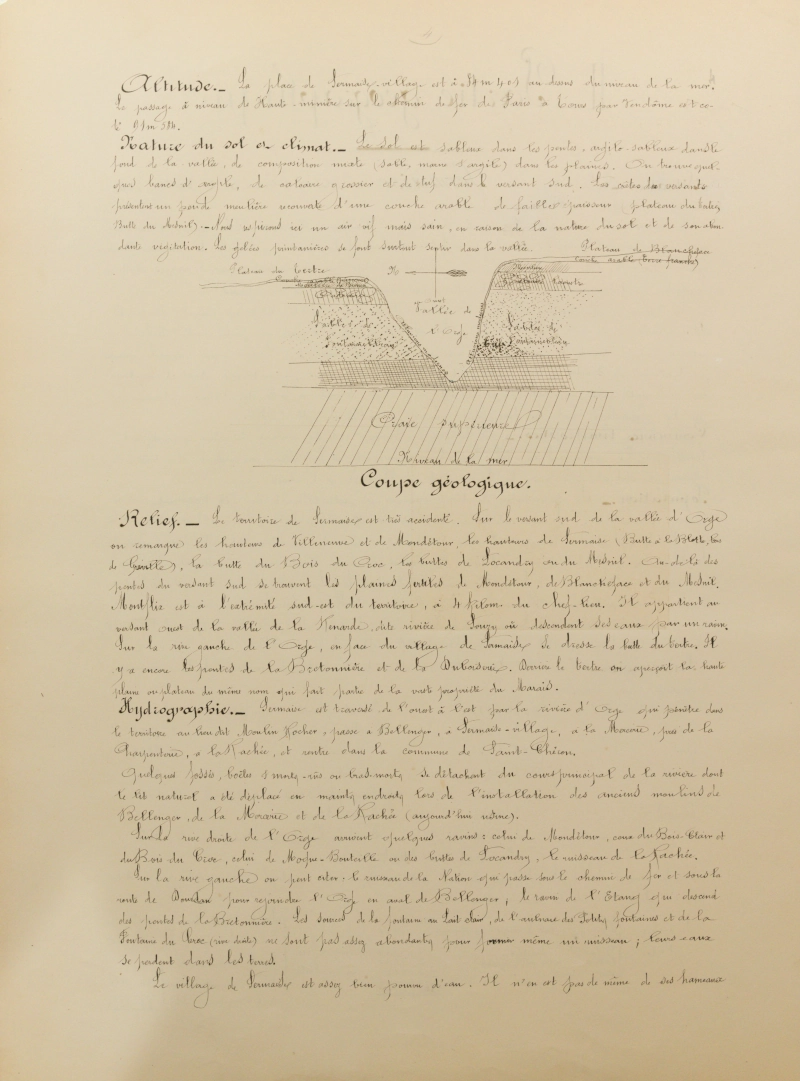 Altitude. — La place de Sermaise-village est à 84 m 401 au dessus du niveau de la mer.
Le passage à niveau de Haute-minière sur le chemin de fer de Paris à Tours par Vendôme est co-
té 91m 516.
Nature du sol et climat. — Le sol est sableux dans les pentes, argilo-sableux dans le
fond de la vallée, de composition mixte (sable, marne & argile) dans les plaines. On trouve quel-
ques bancs d'argile, de calcaire grossier et de tuf dans le versant sud. Les crêtes des versants
présentent un peu de meulière recouverte d'une couche arable de faible épaisseur (plateau du tertre,
Butte du Mesnil). — Nous respirons ici un air vif mais sain, en raison de la nature du sol et de son abon-
dante végétation. Les gelées printanières se font surtout sentir dans la vallée.
Plateau de Blancheface
Couche arable (terre franche)
Plateau du tertre
N
Vallée de
l'Orge
Sables de
Fontainebleau
Sables de
Fontainebleau
Craie supérieure
Niveau de la mer
Coupe géologique.
Relief. — Le territoire de Sermaise est très accidenté. Sur le versant sud de la vallée d'Orge
on remarque les hauteurs de Villeneuve et de Mondétour, les hauteurs de Sermaise (Butte à le Blotte, les
de Gréville), la butte du Bois du Croc, les buttes de Locandry ou du Mesnil. Au-delà des
pentes du versant sud se trouvent les plaines fertiles de Mondétour, de Blancheface et du Mesnil.
Montflix est à l'extrémité sud-est du territoire, à 4 kilom. du chef-lieu. Il appartient au
versant ouest de la vallée de la Renarde, dite rivière de Souzy où descendent ses eaux par un ravin.
Sur la rive gauche de l'Orge, en face du village de Sermaise se dresse la butte du tertre. Il
y a encore les pentes de la Bretonnière et de la Duboiserie. Derrière le tertre on aperçoit la haute
plaine ou plateau du même nom qui fait partie de la vaste propriété du Marais.
Hydrographie. — Sermaise est traversé de l'ouest à l'est par la rivière d'Orge qui pénètre dans
le territoire au lieu dit Moulin Rocher, passe à Bellenger, à Sermaise-village, à la Mercerie, près de la
Charpenterie, à la Rachée, et rentre dans la commune de Saint-Chéron.
Quelques fossés, boëles & mortes-rues ou bras-morts se détachent du cours principal de la rivière dont
le lit naturel a été déplacé en maints endroits lors de l'installation des anciens moulins de
Bellenger, de la Mercerie et de la Rachée (aujourd'hui usine).
Sur la rive droite de l'Orge arrivent quelques ravins: celui de Mondétour, ceux du Bois-Clair et
du Bois du Croc, celui de Moque-Bouteille ou des buttes de Locandry, le ruisseau de la Rachée.
Sur la rive gauche on peut citer: le ruisseau de la Nation qui passe sous le chemin de fer et sous la
route de Dourdan pour rejoindre l'Orge en aval de Bellenger; le ravin de l'Etang qui descend
des pentes de la Bretonnière. Les sources de la fontaine au Lait clair, de l'aulnaie des Petites fontaines et de la
Fontaine du Croc (rive droite) ne sont pas assez abondantes pour former même un ruisseau; leurs eaux
se perdent dans les terres.
Le village de Sermaise est assez bien pourvu d'eau. Il n'en est pas de même de ses hameaux